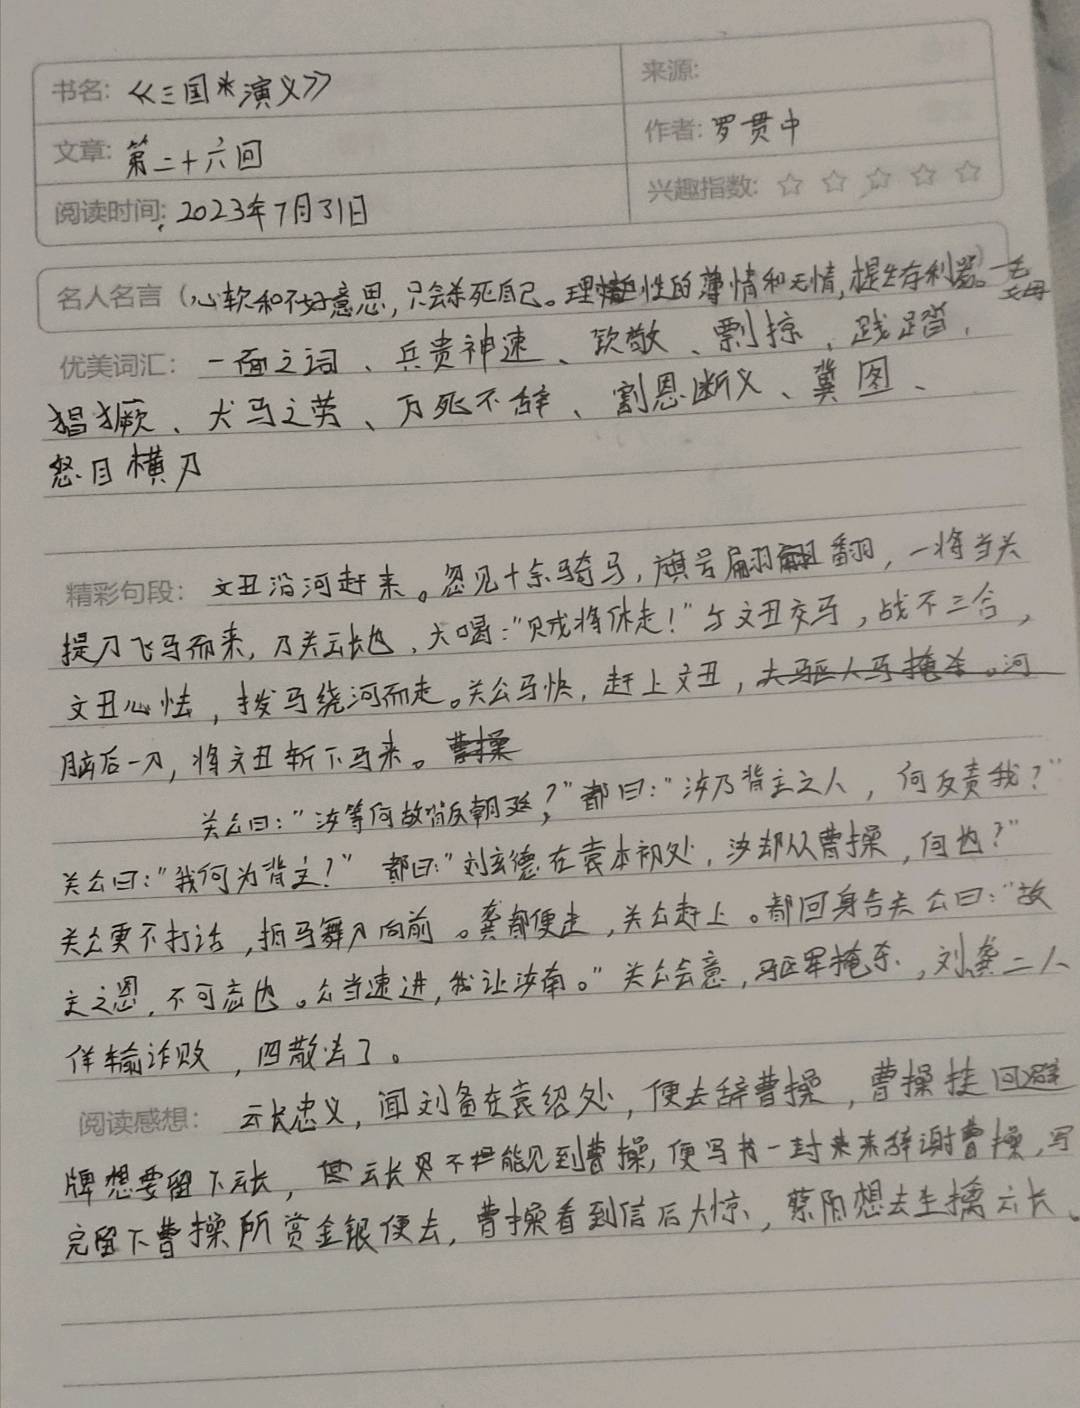 书名: 《三国演义》
来源:
文章: 第二十六回
作者: 罗贯中
阅读时间: 2023年7月31日
兴趣指数: ☆ ☆ ☆ ☆ ☆
名人名言 (心软和不好意思,只会杀死自己。理性的薄情和无情,是生存利器)
优美词汇: 一面之词、兵贵神速、钦敬、剽掠、践踏、
猖獗、犬马之劳、万死不辞、割恩断义、冀图、
怒目横刀
精彩句段: 文丑沿河赶来。忽见十余骑马,旗号翩翻,一将当头
提刀飞马而来,乃关云长也,大喝:"贼将休走!"与文丑交马,战不三合,
文丑心怯,拨马绕河而走。关公马快,赶上文丑,
脑后一刀,将文丑斩下马来。
关公曰:"汝等何故背反朝廷?"都曰:"汝乃背主之人,何反责我?"
关公曰:"我何为背主?" 都曰:"刘玄德在袁本初处,汝却从曹操,何也?"
关公更不打话,拍马舞刀向前。龚都便走,关公赶上。都回身告关公曰:"故
主之恩,不可忘也。公当速进,我让汝南。"关公会意,驱军掩杀,刘龚二人
佯输诈败,四散去了。
阅读感想: 云长忠义,闻刘备在袁绍处,便去辞曹操,曹操挂回避
牌想要留下云长,云长不能见到曹操,便写书一封来来辞谢曹操,写
完留下曹操所赏金银便去,曹操看到信后大惊,蔡阳想去生擒云长。